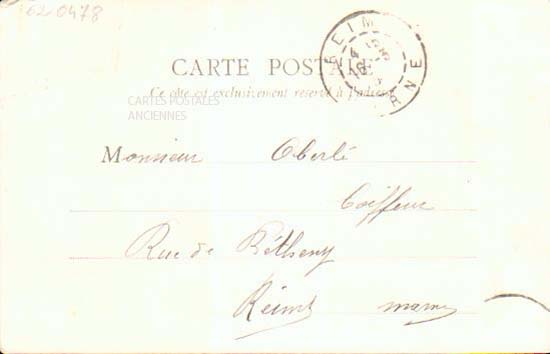 620478
REIMS
MARNE
CARTE POSTALE
Ce côté est exclusivement réservé à l'adresse
CARTES POSTALES
ANCIENNES
Monsieur Oberlé
Coiffeur
Rue de Bétheny
Reims marne